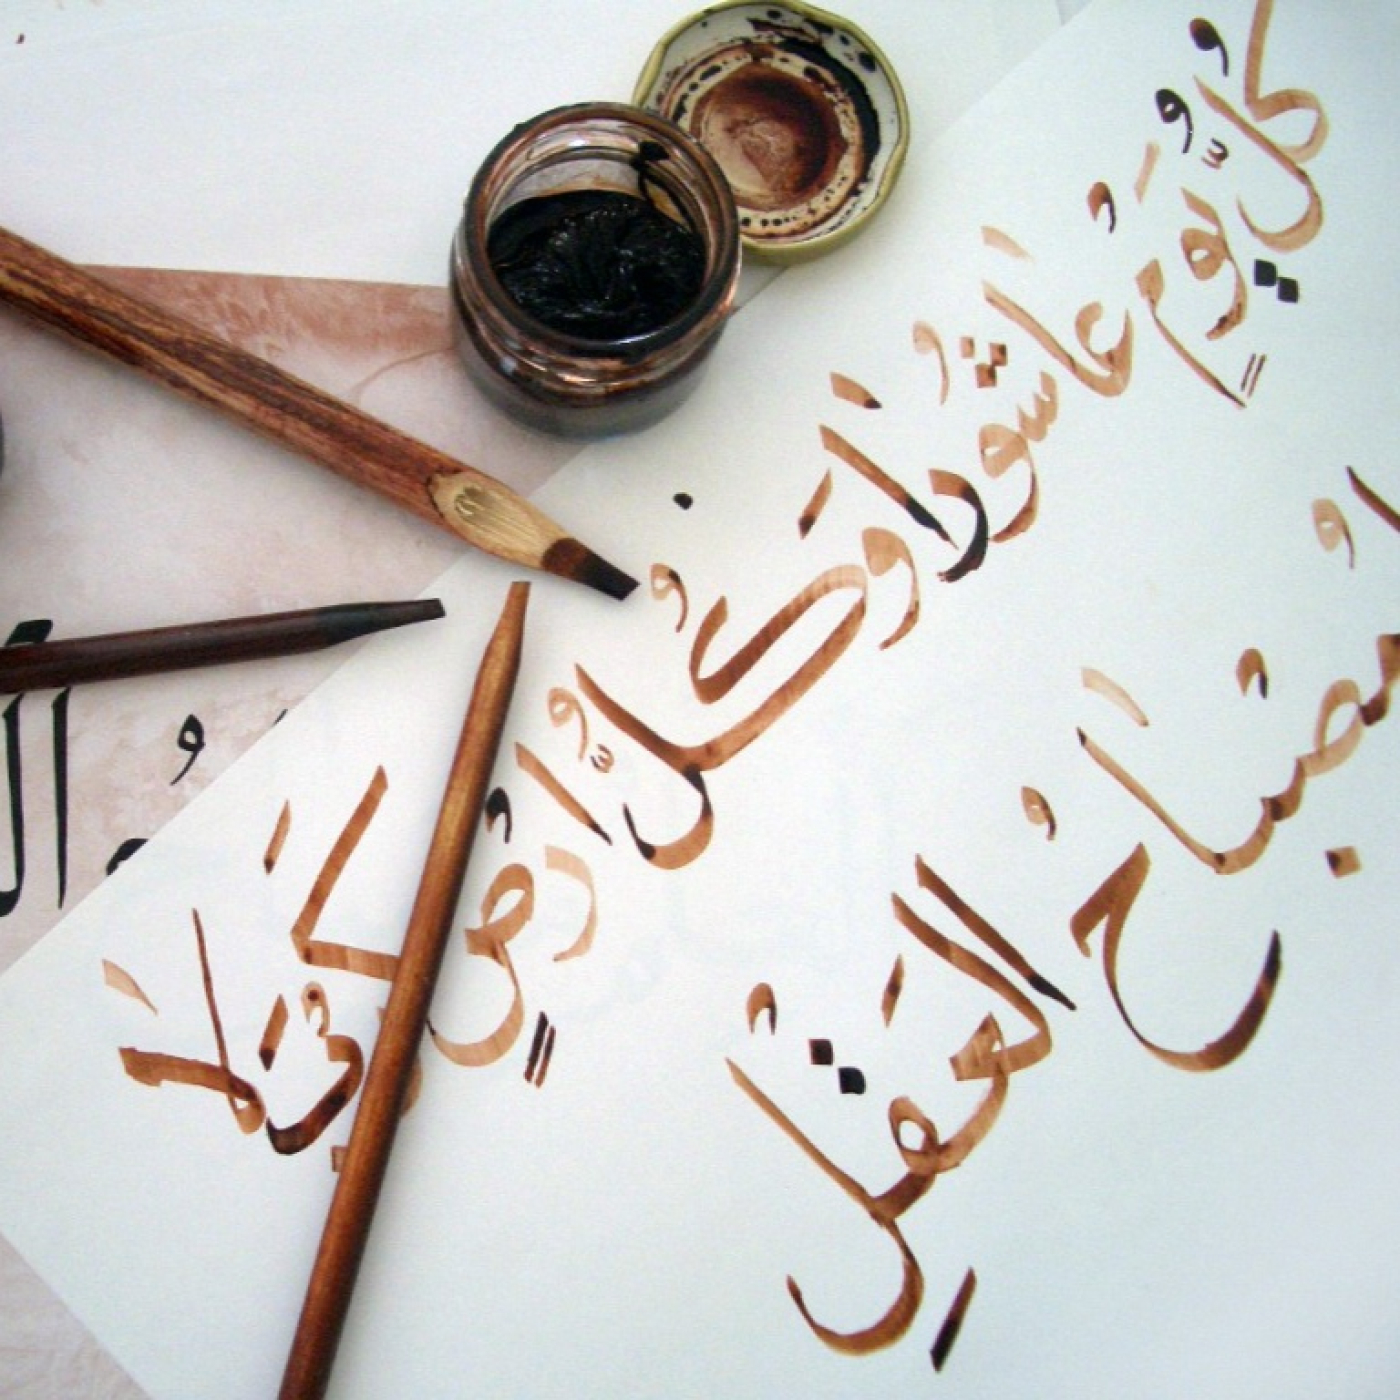 كُلُّ يَوْمٍ عَاشُورَا وَكُلُّ اَرْضٍ كَرْبَلَا
مِصْبَاحُ الْعَقْلِ